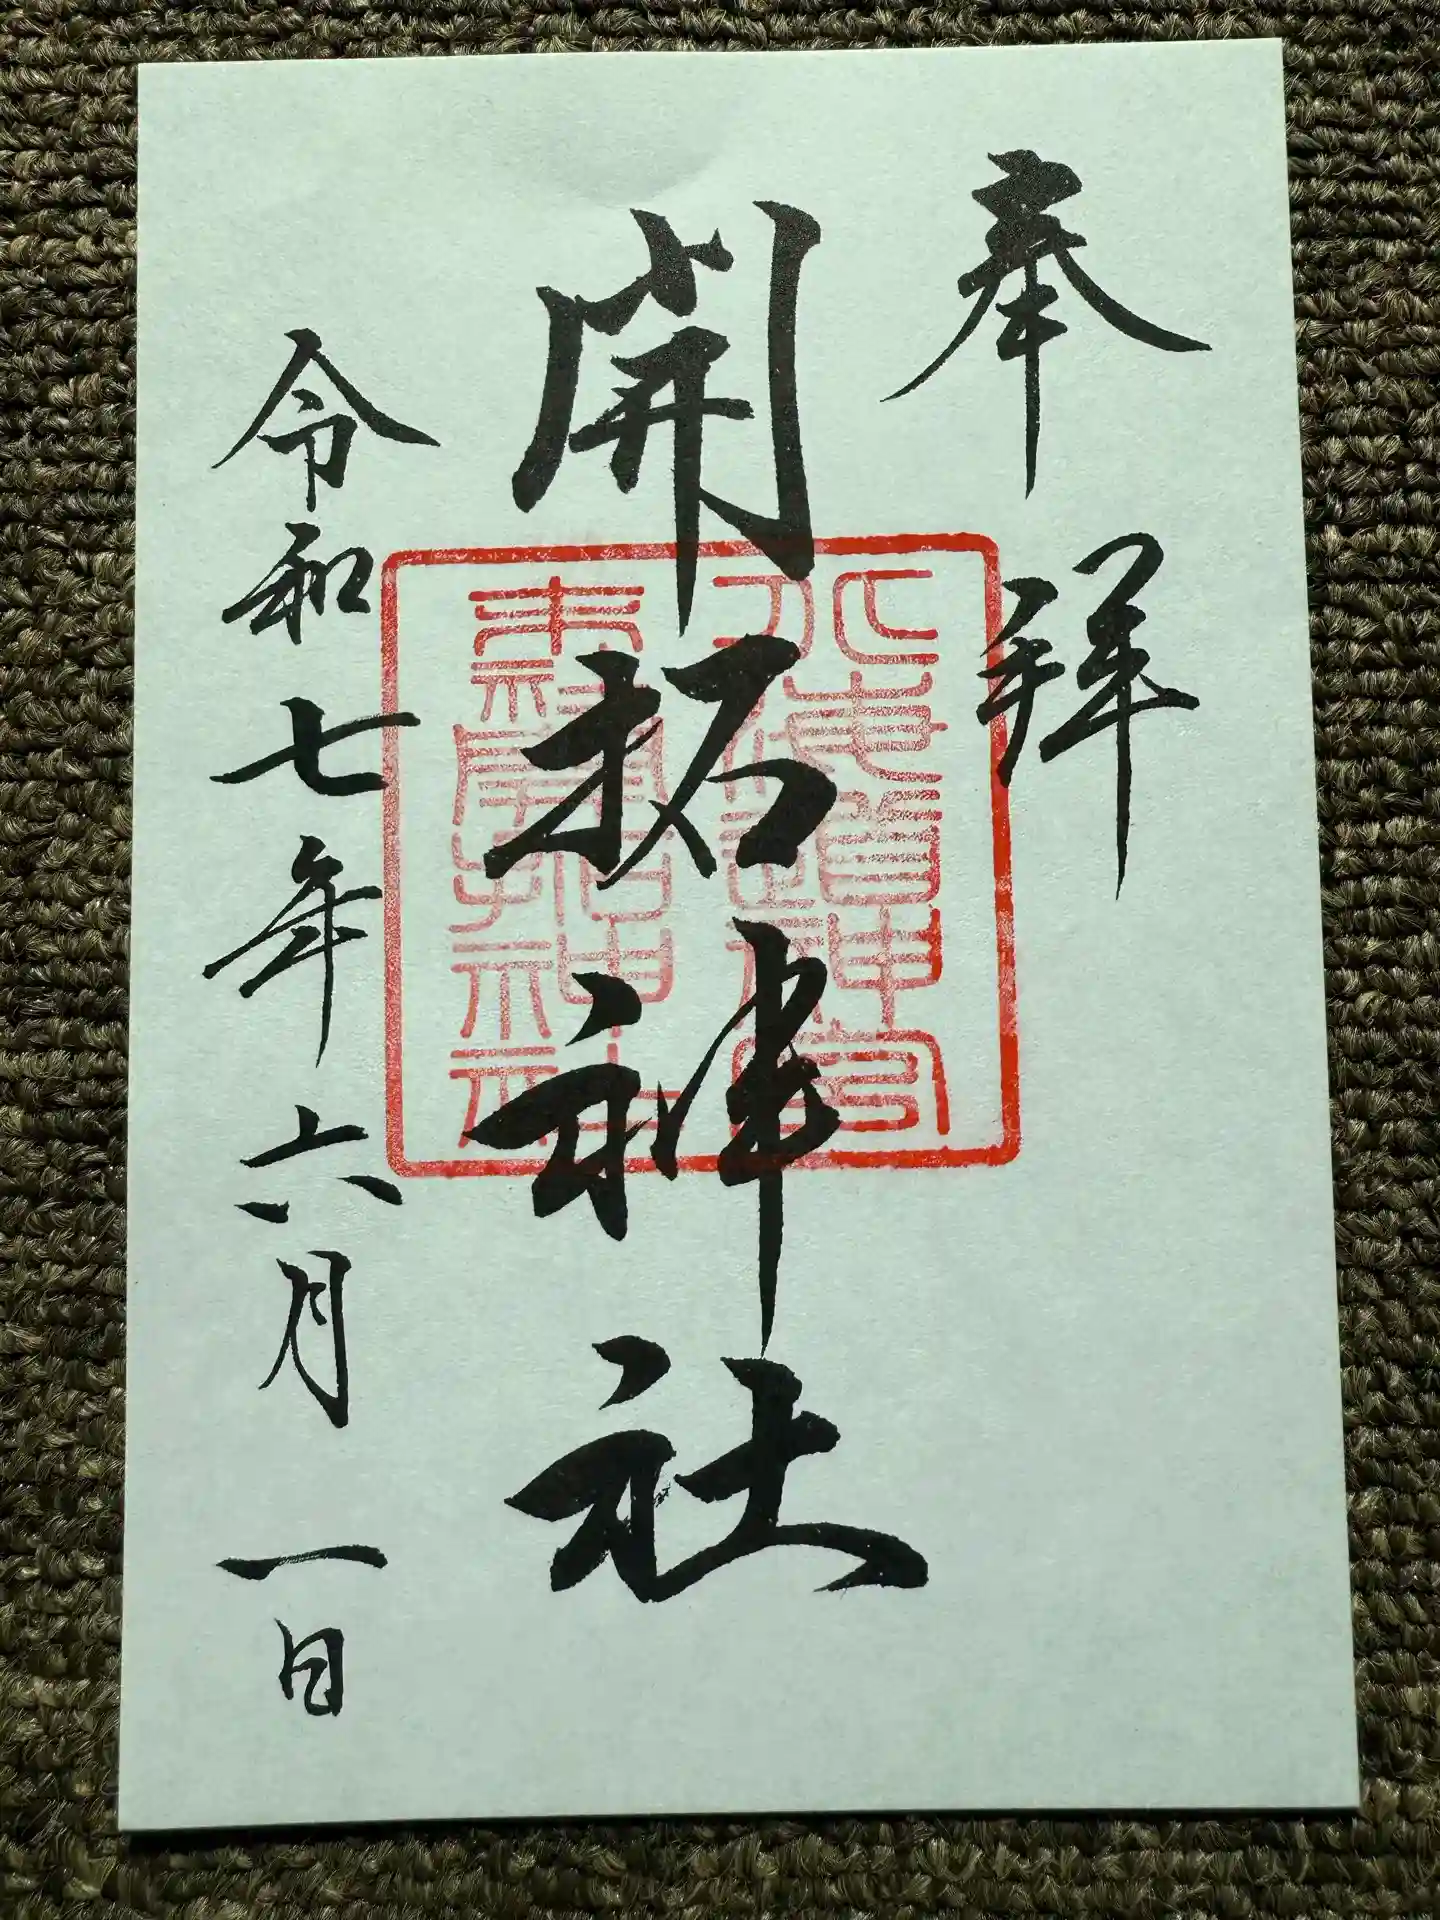 奉拝
開拓神社
北海道神宮
末社開拓神社
令和七年六月一日